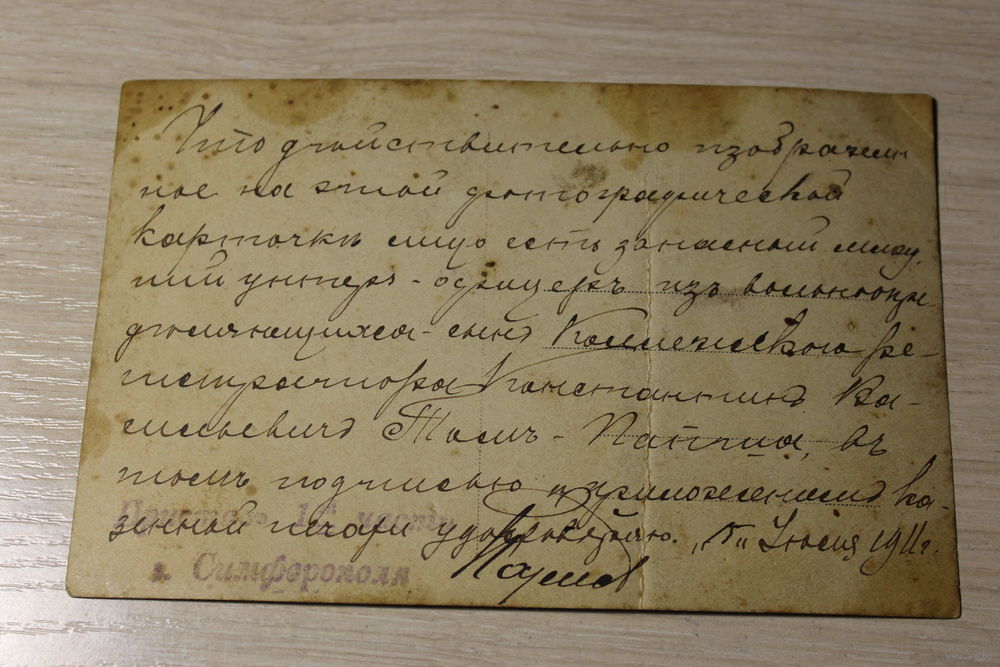 Что действительно изображен
ное на этой фотографической
карточкѣ лицо есть запасный млад
шій унтеръ-офицеръ изъ вольноопре
дѣляющихся-сынъ Коллежскаго ре-
гистратора Константинъ Ва-
сильевичъ
въ
томъ подписью и приложеніемъ ка-
зенной печати удостовѣряю. „5" Іюля 1911г.
Пристав 1й части
г. Симферополя